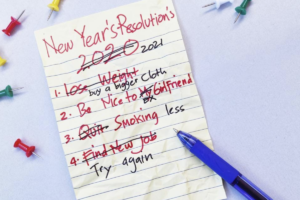 New Year's Resolution's
2020 2021
1. Lose Weight
buy a bigger Cloth
2. Be Nice to My GirlFriend
ex
3. Quit Smoking less
4. Find New Job
Try again